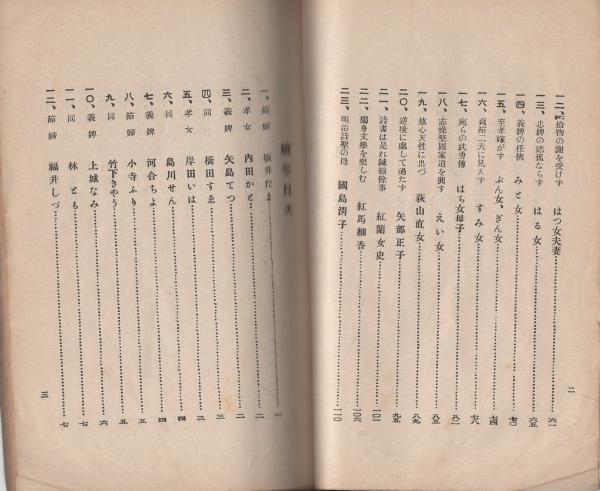 一二、拾物の謝を受けず　はつ女夫妻……六一
一三、忠婢の德孤ならず　はる女……六五
一四、義婢の任俠　みと女……七〇
一五、至孝嫁がず　ぶん女、ぎん女……七四
一六、貞節二夫に見えず　すみ女……七八
一七、宛らの武勇傳　はち女母子……八一
一八、志操堅固家道を興す　えい女……八五
一九、慈心天性に出づ　荻山直女……八九
二〇、逆境に處して過たず　矢部正子……九五
二一、詩書は是れ鍼線餘事　紅蘭女史……一〇一
二二、獨身文學を樂しむ　紅馬細香……一〇六
二三、明治詩聖の母　國島清子……一一〇
二
續卷目次
一、節婦　坂井たま……一
二、孝女　内田かと……二
三、義婢　矢島てつ……二
四、同　橋田すゑ……三
五、孝女　岸田いは……三
六、同　島川せん……四
七、義婢　河合ちよ……四
八、節婦　小寺ふり……五
九、同　竹下きやう……五
一〇、義婢　上城なみ……六
一一、同　林とも……七
一二、節婦　福井しづ……七
三